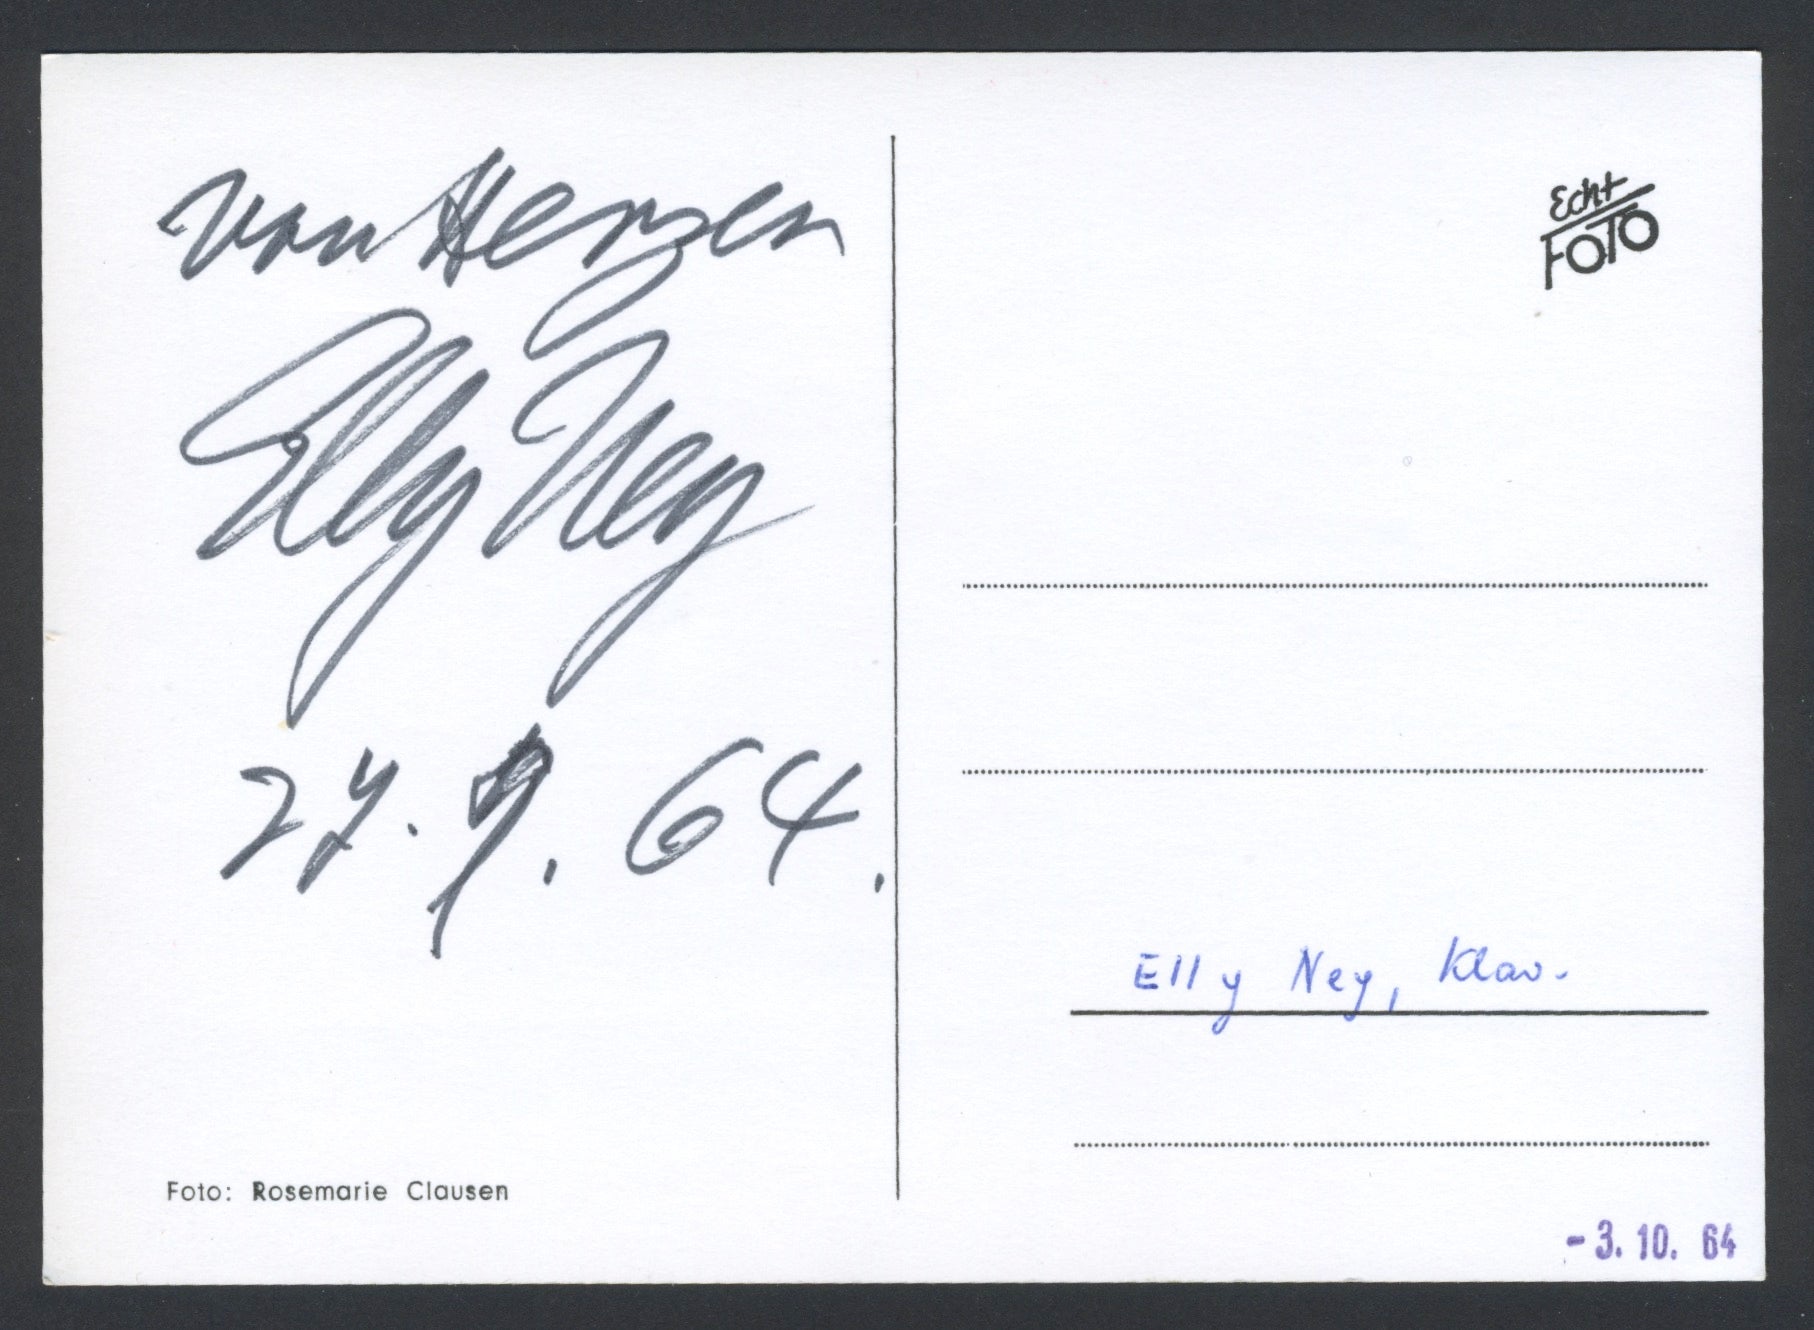 von Herzen
Elly Ney
27. 9. 64.
Foto: Rosemarie Clausen
Echt
FOTO
Elly Ney, Klav.
-3. 10. 64